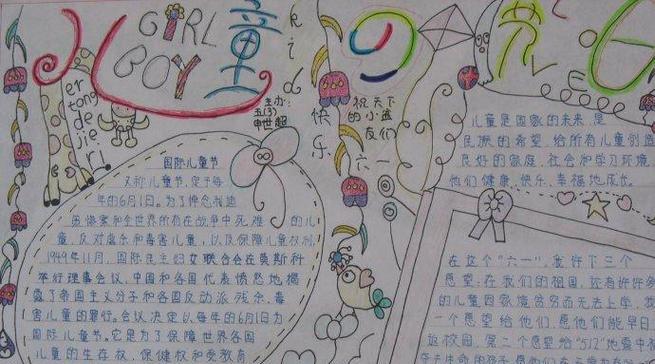 儿童の节
GIRL
BOY
kid
6
er
tong
de
jie
ri
主办:
五(3)
申世超
快乐
祝天下
的小盆
友们
六一
LOVE
国际儿童节
又称儿童节,定于每
年的6月1日。为了悼念
和全世界所有在战争中死难的儿
童,反对虐杀和毒害儿童,以及保障儿童权利,
1949年11月,国际民主妇女联合会在莫斯科
举行理事会议,中国和各国代表愤怒地揭
露了帝国主义分子和各国反动派残杀、毒
害儿童的罪行。会议决定以每年的6月1日为
国际儿童节。它是为了保障世界各国
儿童的生存权、保健权和受教育
儿童是国家的未来,是
民族的希望,给所有儿童创造
良好的家庭、社会和学习环境,
他们健康、快乐、幸福地成长。
在这个“六一”,我许下三个
愿望:在我们的祖国,还有许许多
的儿童因家境贫穷而无法上学,我
一个愿望给他们,愿他们能早日
返校园。第二个愿望给“512”地震中